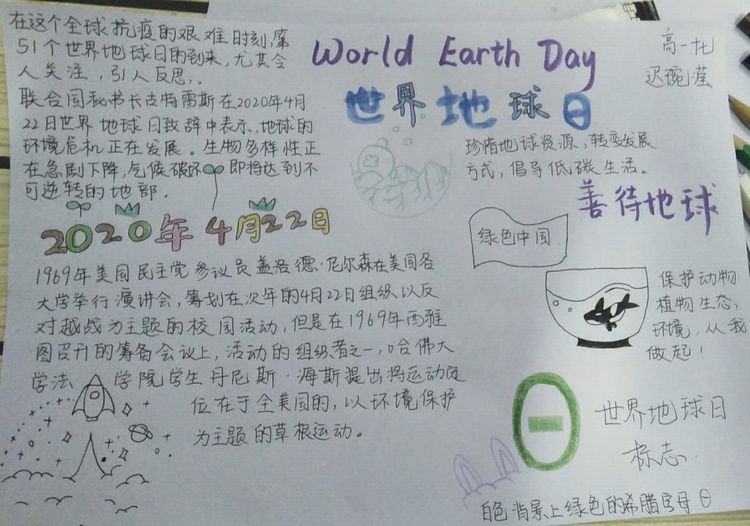 在这个全球抗疫的艰难时刻,第
51个世界地球日的到来,尤其令
人关注,引人反思。
联合国秘书长古特雷斯在2020年4月
22日世界地球日致辞中表示,地球的
环境危机正在发展。生物多样性正
在急剧下降,气候破坏即将达到不
可逆转的地部.
World Earth Day
世界地球日
高一
珍惜地球资源,转变发展
方式,倡导低碳生活。
善待地球
2020年4月22日
1969年美国民主党参议员盖洛德·尼尔森在美国各
大学举行演讲会,筹划在次年的4月22日组织以反
对越战为主题的校园活动,但是在1969年西雅
图召开的筹备会议上,活动的组织者之一,哈佛大
学法学院学生丹尼斯·海斯提出将运动定
位在于全美国的,以环境保护
为主题的草根运动。
绿色中国
保护动物
植物生态,
环境,从我
做起!
世界地球日
标志:
白色背景上绿色的希腊字母Θ